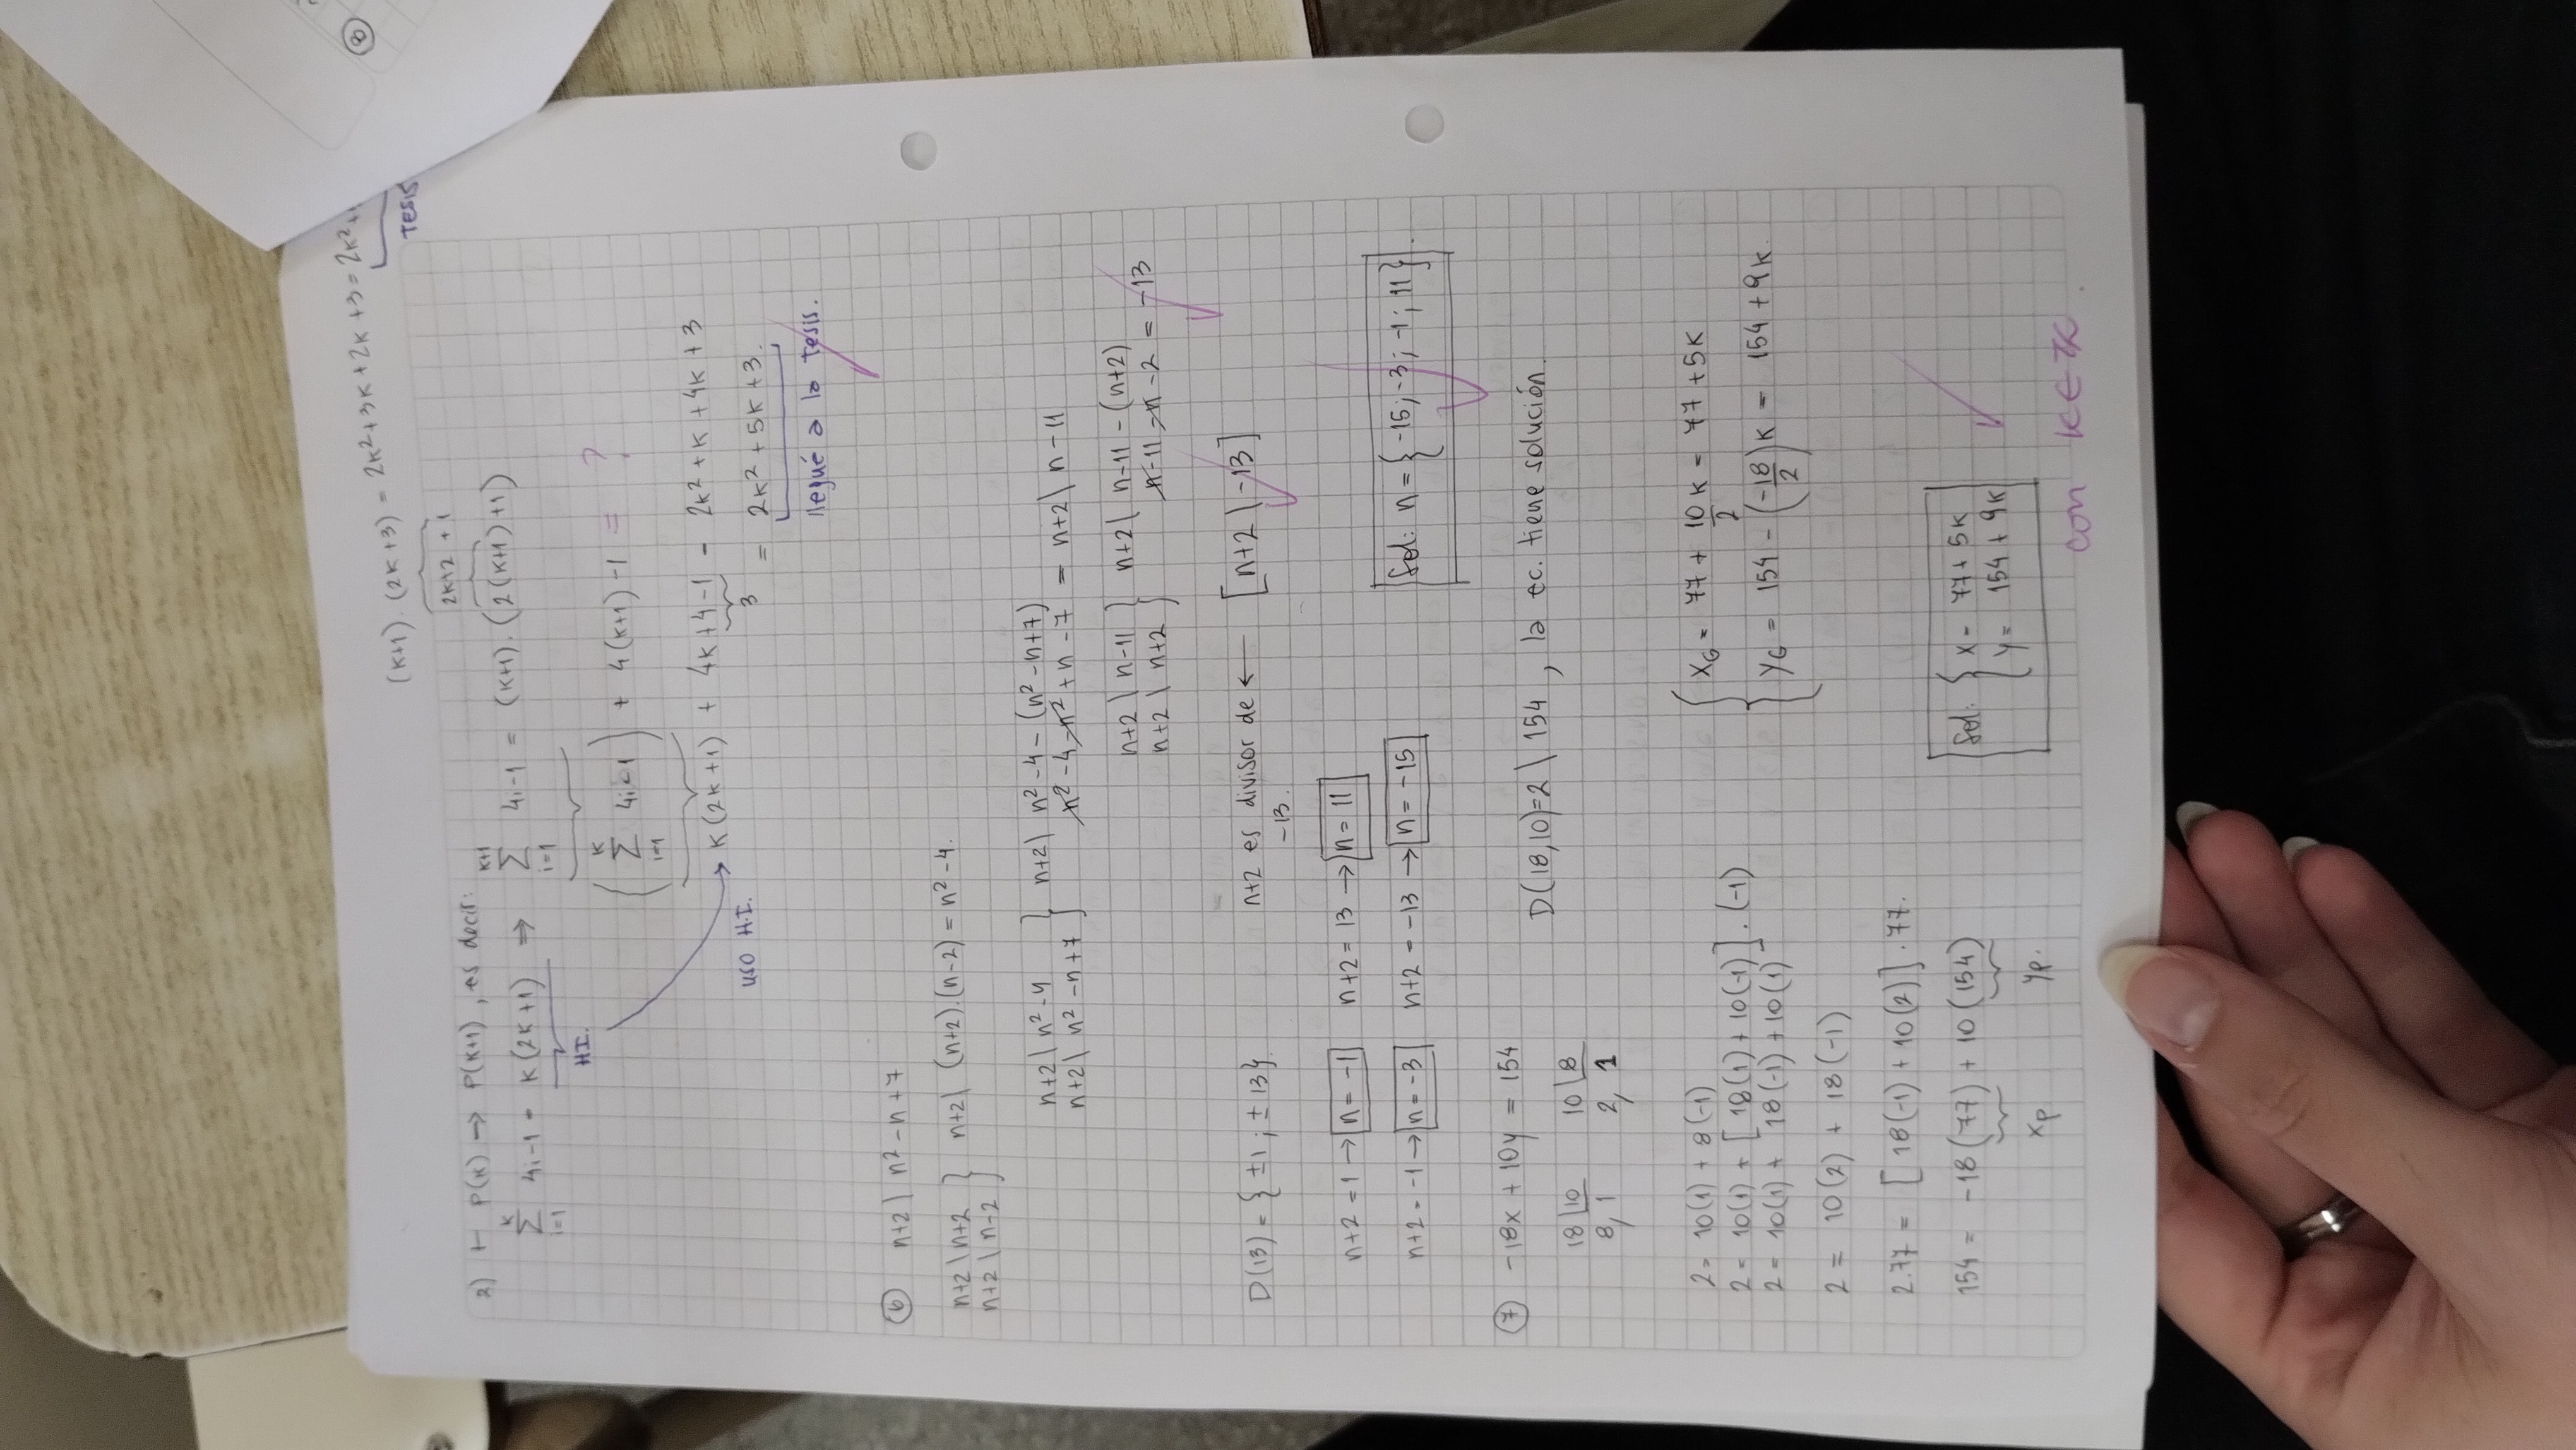 (k+1).(2k+3) = 2k²+3k+2k+3 = 2k²+
tesis
2k+2 + 1
2) ⊢ P(k) → P(k+1), es decir:
k
∑ 4i-1 = k(2k+1) ⇒ ∑ 4i-1 = (k+1).(2(k+1)+1)
i=1
k+1
i=1
HI.
(∑ 4i-1) + 4(k+1)-1 = ?
k
i=1
k(2k+1) + 4k+4-1 = 2k²+k+4k+3
uso H.I.
3
= 2k²+5k+3.
llegué a la tesis.
⑥ n+2 \ n²-n+7
n+2 \ n+2 } n+2 \ (n+2).(n-2) = n²-4.
n+2 \ n-2
n+2 \ n²-4 } n+2 \ n²-4-(n²-n+7)
n+2 \ n²-n+7 n²-4-n²+n-7 = n+2 \ n-11
n+2 \ n-11 } n+2 \ n-11-(n+2)
n+2 \ n+2 n-11-n-2 = -13
D(13) = {±1; ±13}. n+2 es divisor de ← [n+2 \ -13]
-13.
n+2 = 1 → n = -1 n+2 = 13 → n = 11
n+2 = -1 → n = -3 n+2 = -13 → n = -15
Sol: n = {-15; -3; -1; 11}.
⑦ -18x + 10y = 154
D(18,10)=2 \ 154, la ec. tiene solución.
18 | 10 10 | 8
8, 1 2, 1
2 = 10(1) + 8(-1)
2 = 10(1) + [18(1) + 10(-1)].(-1)
2 = 10(1) + 18(-1) + 10(1)
2 = 10(2) + 18(-1)
2.77 = [18(-1) + 10(2)].77.
154 = -18(77) + 10(154)
xp yp.
{ xG = 77 + 10/2 k = 77 + 5k
yG = 154 - (-18/2)k = 154 + 9k.
Sol: { x = 77 + 5k
y = 154 + 9k
con k∈ℤ.
⑧